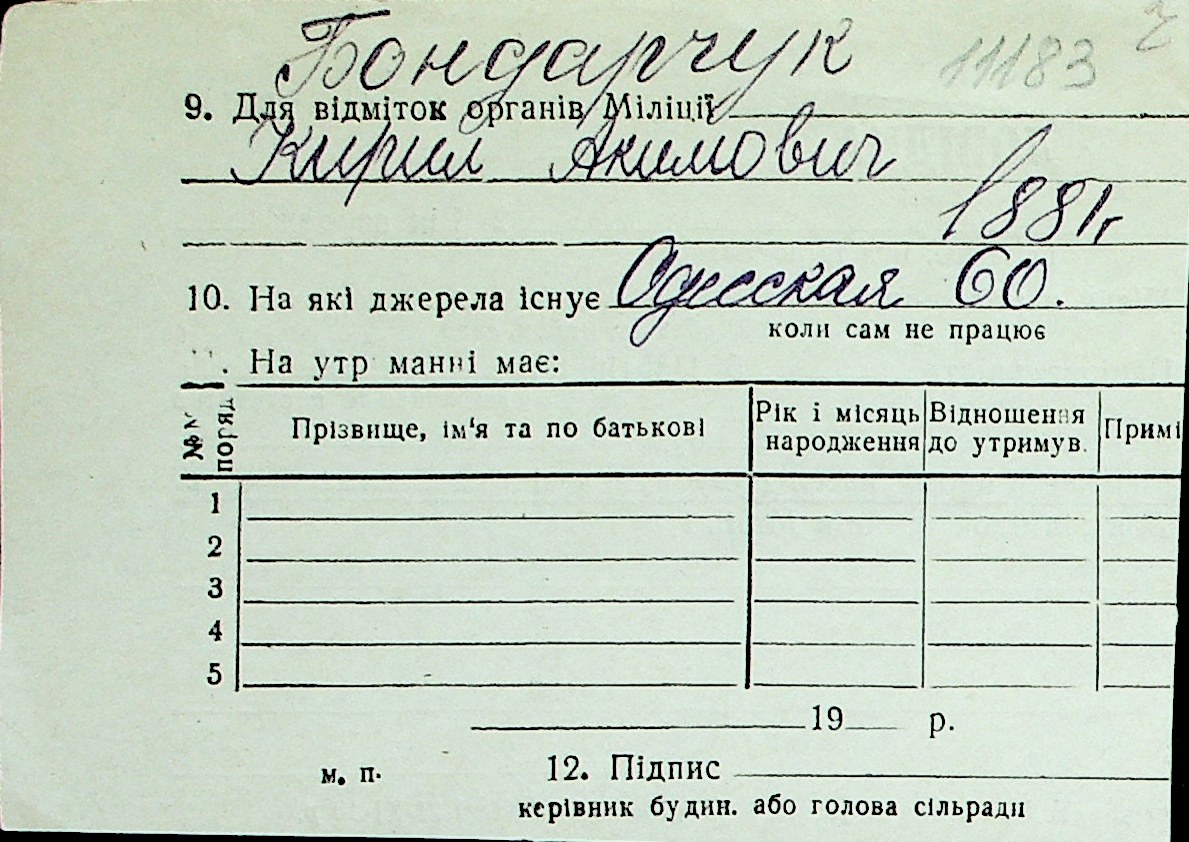 Бондарчук 11183
9. Для відміток органів Міліції
Кирил Акимович
1881г
10. На які джерела існує Одесская 60.
коли сам не працює
. На утр манні має:
№№ поряд
Прізвище, ім'я та по батькові
Рік і місяць народження
Відношення до утримув.
Примі
1
2
3
4
5
19 р.
м. п. 12. Підпис
керівник будин. або голова сільради